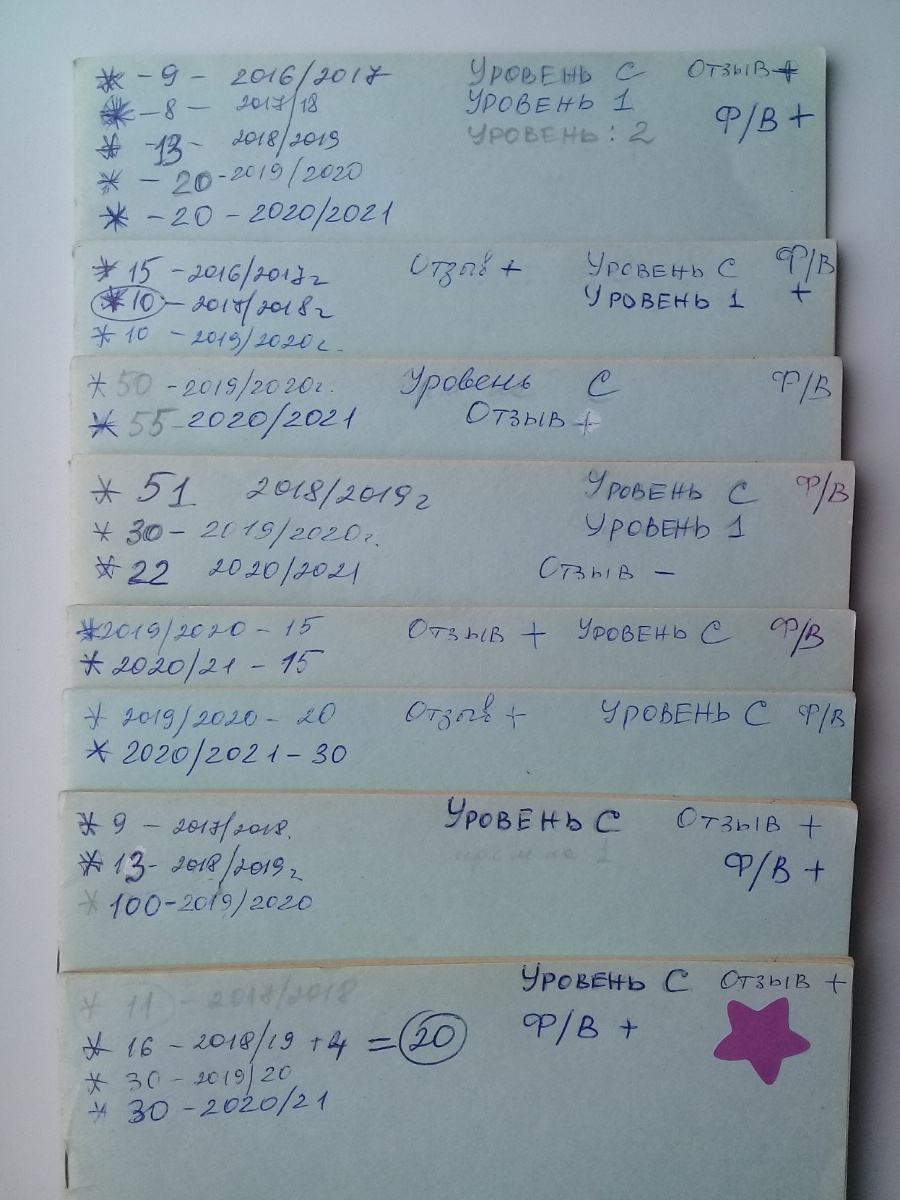 * - 9 - 2016/2017 УРОВЕНЬ С ОТЗЫВ +
* - 8 - 2017/18 УРОВЕНЬ 1 Ф/В +
* - 13 - 2018/2019 УРОВЕНЬ : 2
* - 20 - 2019/2020
* - 20 - 2020/2021
* 15 - 2016/2017г Отзыв + УРОВЕНЬ С Ф/В
* 10 - 2017/2018г УРОВЕНЬ 1 +
* 10 - 2019/2020г.
* 50 - 2019/2020г. Уровень С Ф/В
* 55 - 2020/2021 ОТЗЫВ +
* 51 2018/2019г УРОВЕНЬ С Ф/В
* 30 - 2019/2020г. УРОВЕНЬ 1
* 22 2020/2021 ОТЗЫВ -
* 2019/2020 - 15 ОТЗЫВ + УРОВЕНЬ С Ф/В
* 2020/21 - 15
* 2019/2020 - 20 Отзыв + УРОВЕНЬ С Ф/В
* 2020/2021 - 30
* 9 - 2017/2018. УРОВЕНЬ С ОТЗЫВ +
* 13 - 2018/2019г Ф/В +
* 100 - 2019/2020
УРОВЕНЬ С ОТЗЫВ +
* 11 - 2017/2018
* 16 - 2018/19 + 4 = 20 Ф/В +
* 30 - 2019/20
* 30 - 2020/21